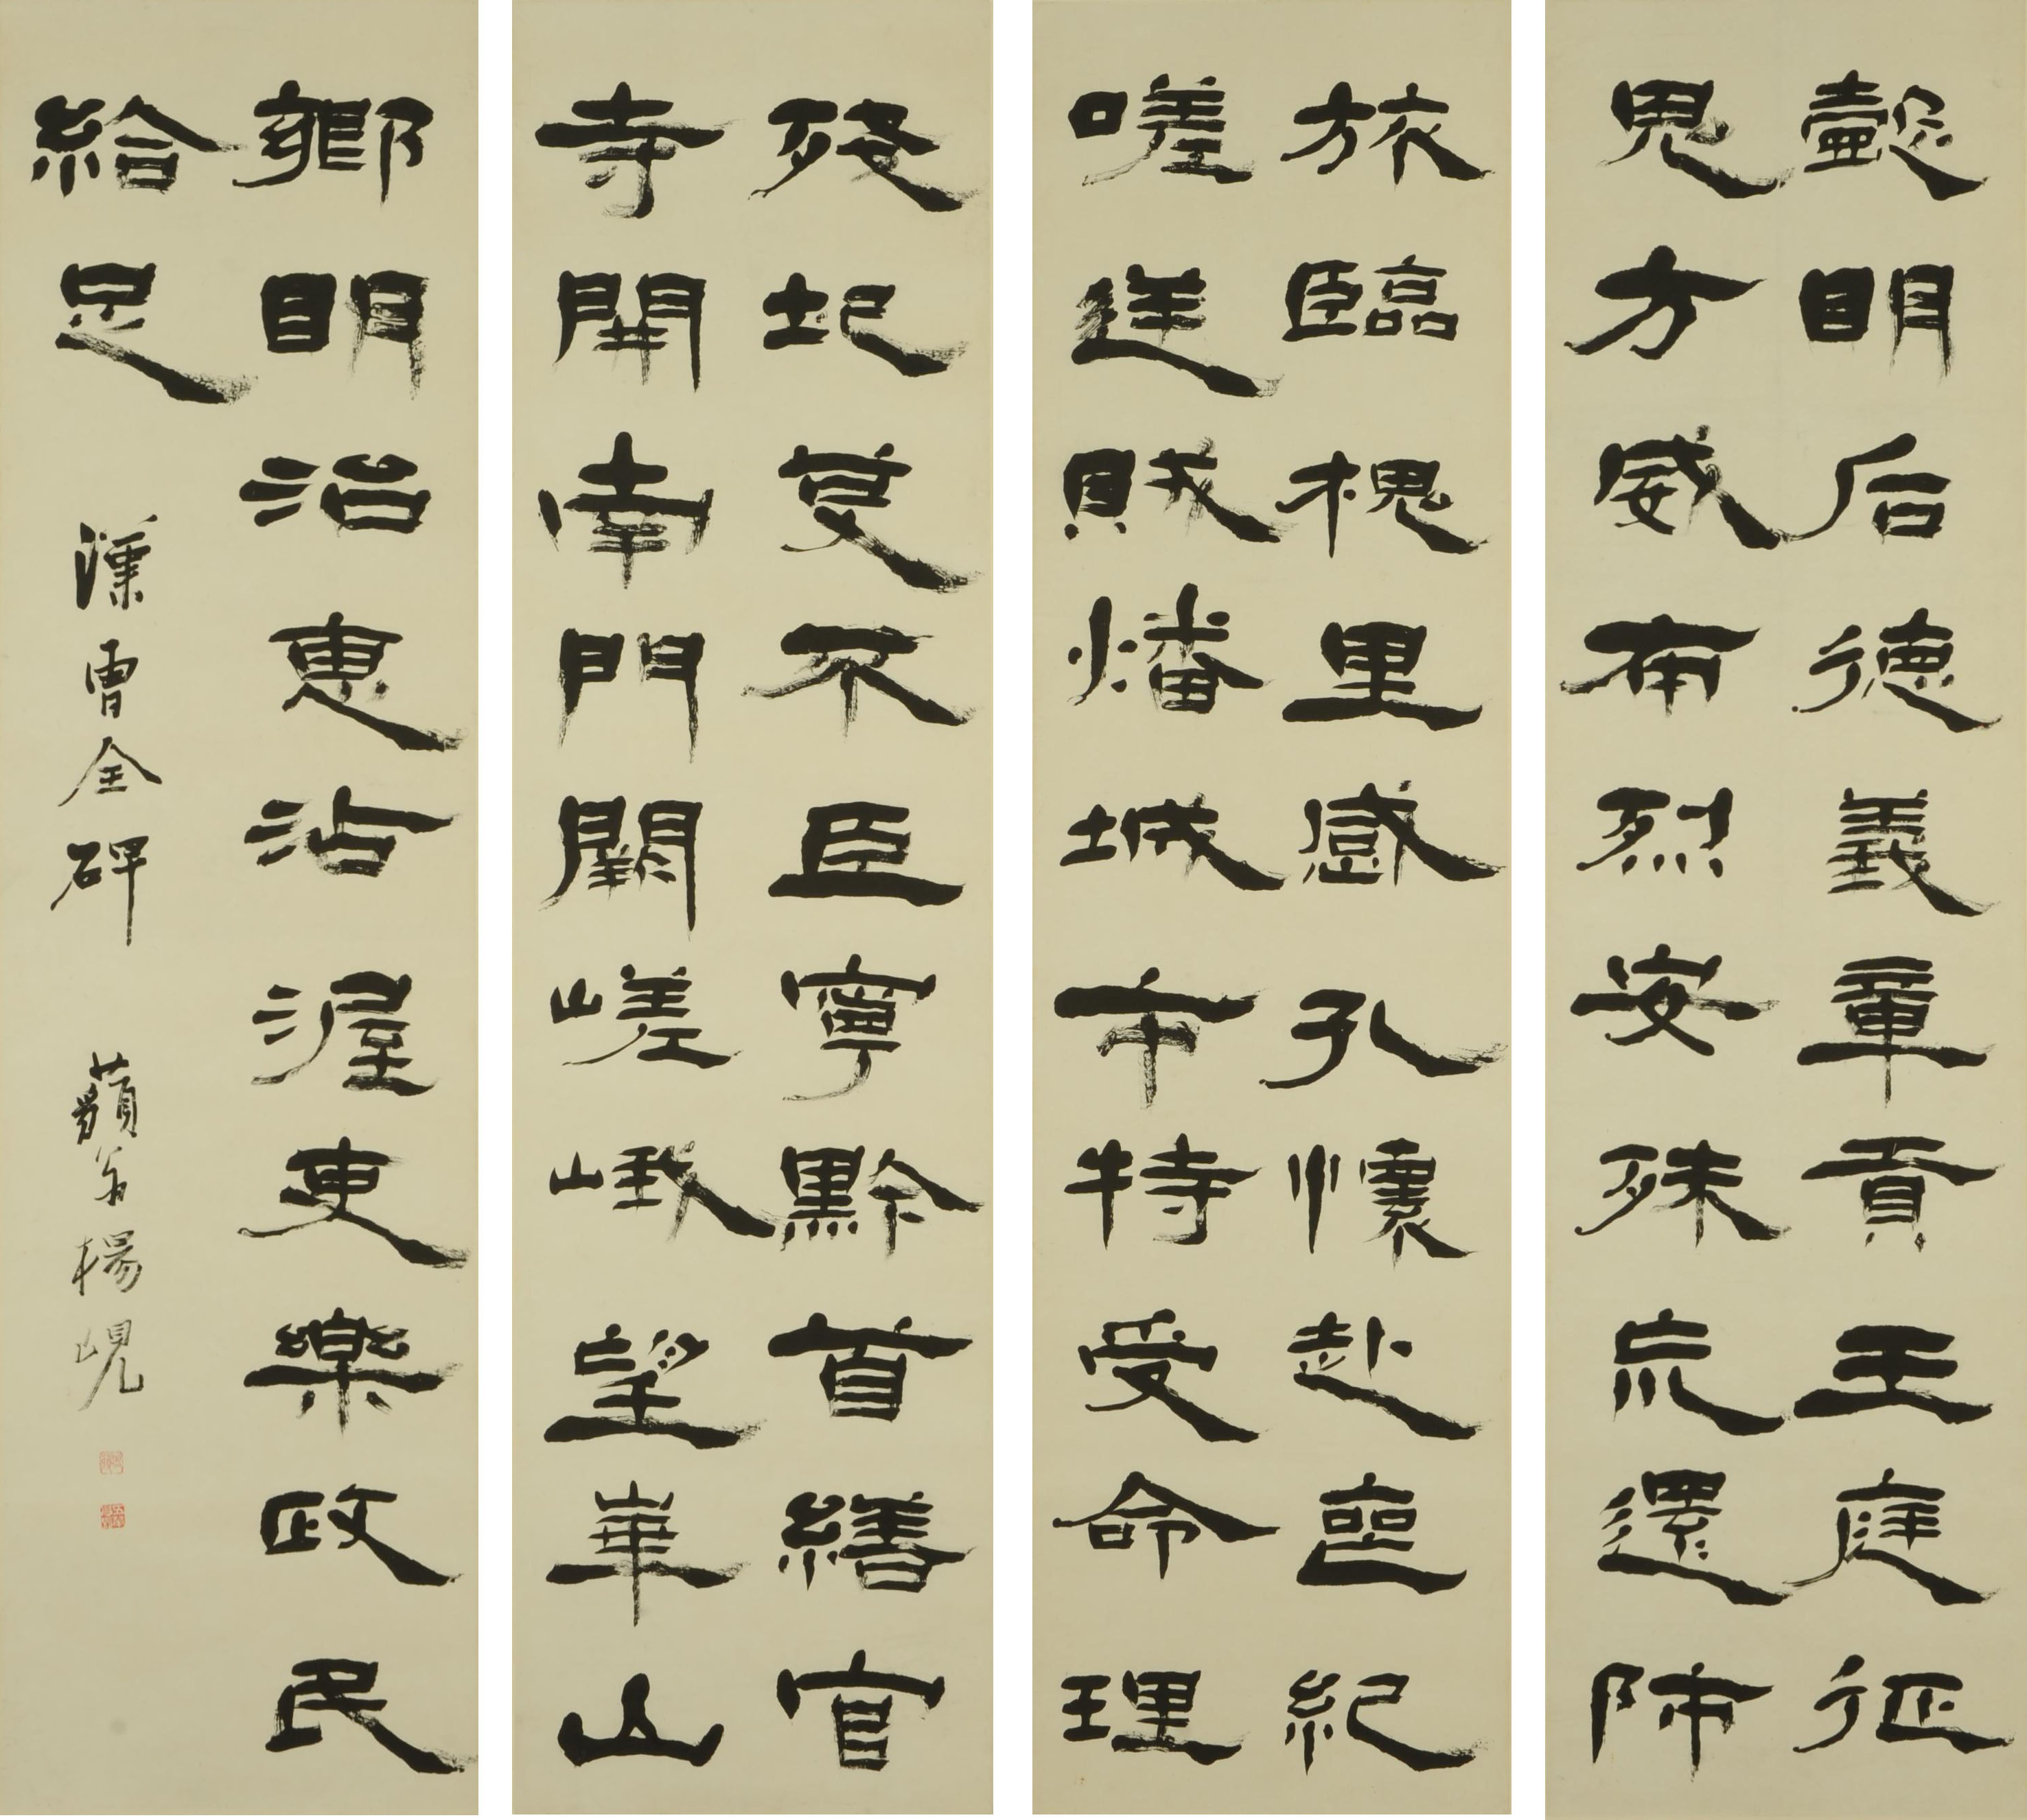 懿明后德義章貢王庭征
鬼方威布烈安殊荒還師
旅臨槐里感孔懷赴喪紀
嗟逆賊燔城市特受命理
殘圮芟不臣寧黔首繕官
寺開南門闕嵯峨望華山
鄉明治惠沾渥吏樂政民
給足
漢曹全碑
藐翁楊峴